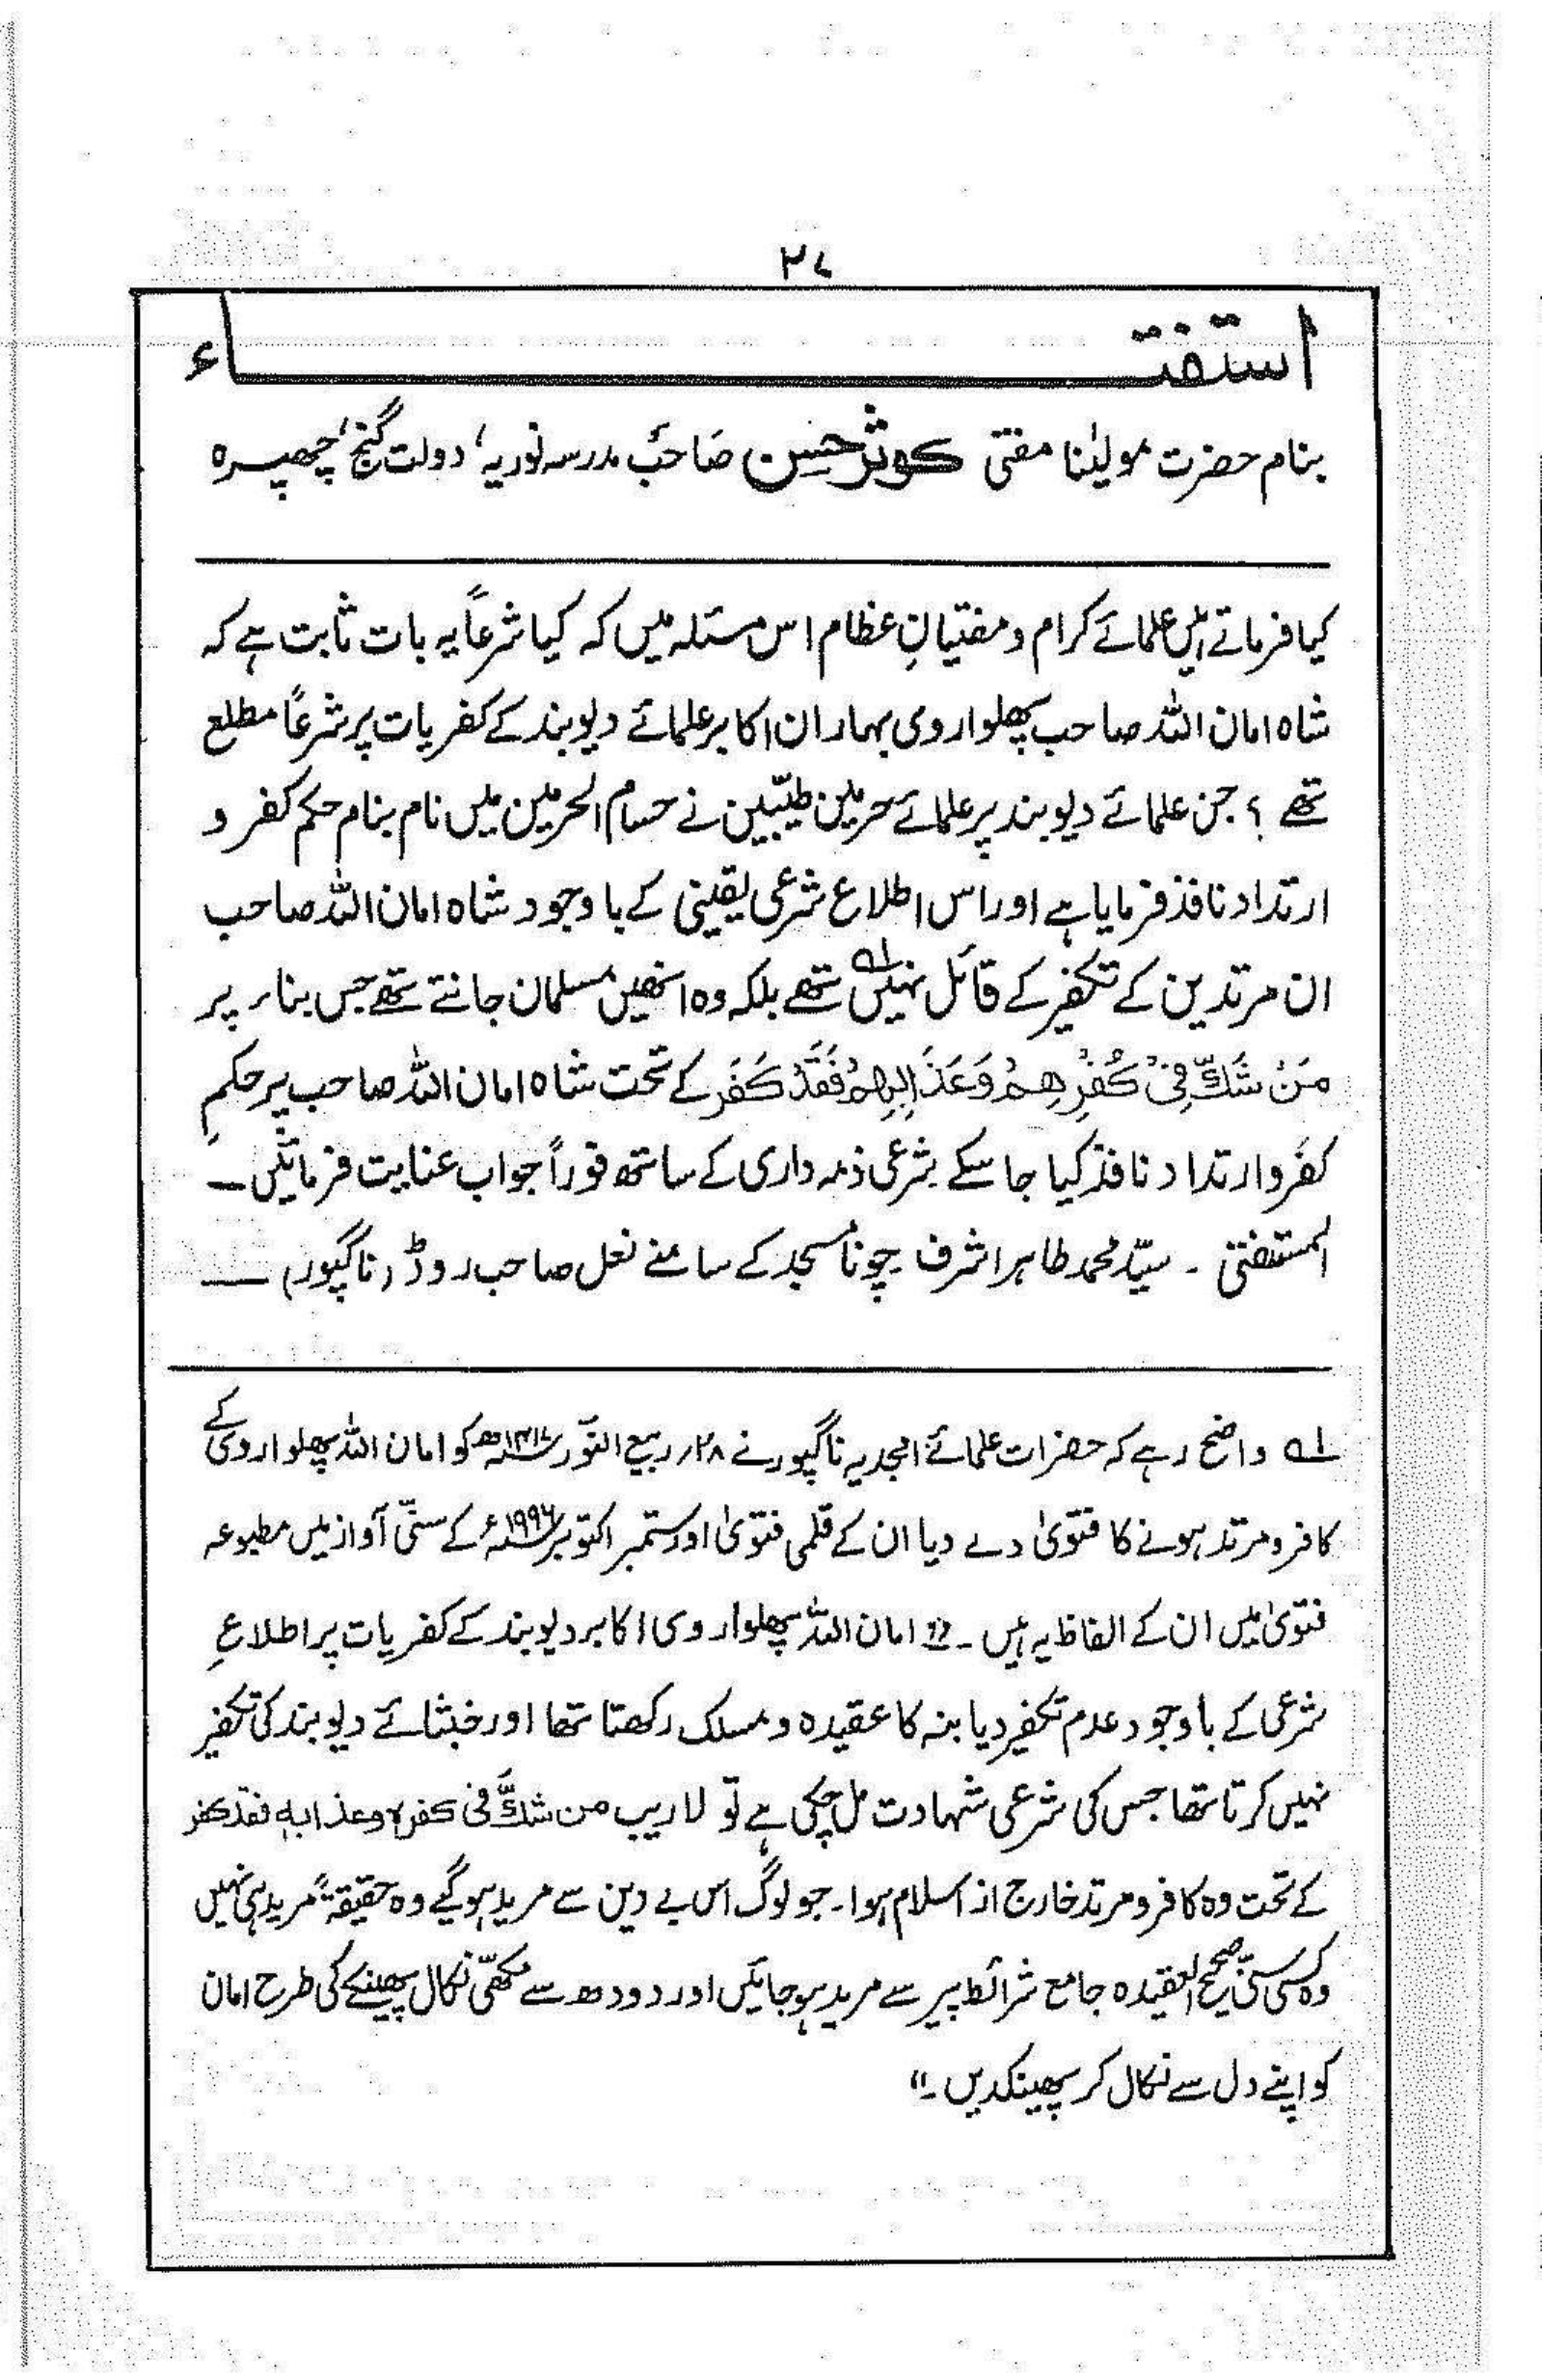 ۲۷
استفتــــــــاء
بنام حضرت مولیٰنا مفتی کوثر حسن صاحب مدرسہ نوریہ، دولت گنج، چھپرہ
کیا فرماتے ہیں علمائے کرام و مفتیانِ عظام اس مسئلہ میں کہ کیا شرعاً یہ بات ثابت ہے کہ
شاہ امان اللہ صاحب پھلواروی بہار ان اکابر علمائے دیوبند کے کفریات پر شرعاً مطلع
تھے ؟ جن علمائے دیوبند پر علمائے حرمین طیّبین نے حسام الحرمین میں نام بنام حکم کفر و
ارتداد نافذ فرمایا ہے اور اس اطلاع شرعی یقینی کے باوجود شاہ امان اللہ صاحب
ان مرتدین کے تکفیر کے قائل نہیں۱؎ تھے بلکہ وہ انھیں مسلمان جانتے تھے جس بناء پر
مَنْ شَكَّ فِیْ كُفْرِهِمْ وَعَذَابِهِمْ فَقَدْ كَفَر کے تحت شاہ امان اللہ صاحب پر حکمِ
کفر و ارتداد نافذ کیا جا سکے شرعی ذمہ داری کے ساتھ فوراً جواب عنایت فرمائیں ـــ
المستفتی ۔ سیّد محمد طاہر اشرف چونا مسجد کے سامنے نعل صاحب روڈ (ناگپور) ـــ
۱؎ واضح رہے کہ حضرات علمائے امجدیہ ناگپور نے ۲۸ ربیع النّور ۱۴۱۷ھ کو امان اللہ پھلواروی کے
کافر و مرتد ہونے کا فتویٰ دے دیا ان کے قلمی فتویٰ اور ستمبر اکتوبر ۱۹۹۶ء کے سنّی آواز میں مطبوعہ
فتویٰ میں ان کے الفاظ یہ ہیں ۔ "امان اللہ پھلواروی اکابر دیوبند کے کفریات پر اطلاعِ
شرعی کے باوجود عدم تکفیر دیابنہ کا عقیدہ و مسلک رکھتا تھا اور خبثائے دیوبند کی تکفیر
نہیں کرتا تھا جس کی شرعی شہادت مل چکی ہے تو لاریب من شكَّ فی كفره وعذابه فقد كفر
کے تحت وہ کافر و مرتد خارج از اسلام ہوا۔ جو لوگ اس بے دین سے مرید ہوگیے وہ حقیقۃً مرید ہی نہیں
وہ کسی سنّی صحیح العقیدہ جامع شرائط پیر سے مرید ہو جائیں اور دودھ سے مکھّی نکال پھینکنے کی طرح امان
کو اپنے دل سے نکال کر پھینکدیں ۔"